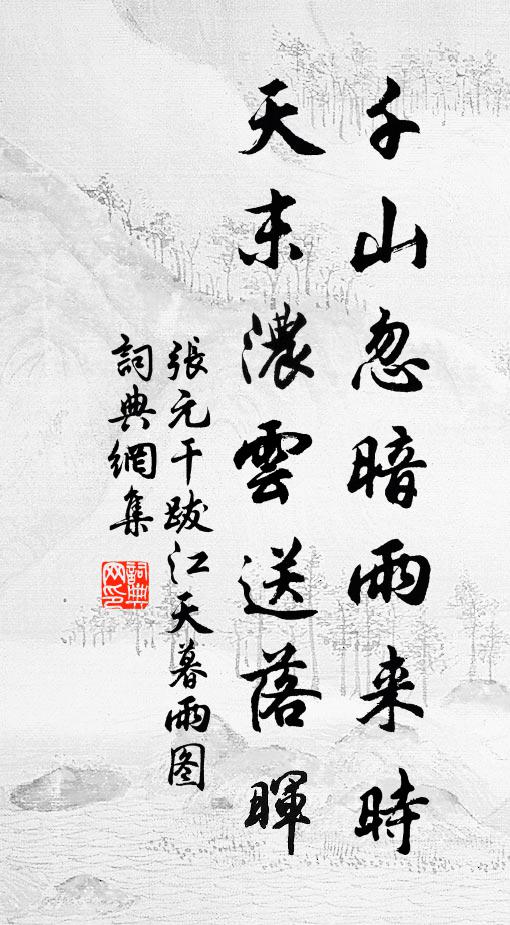 千山忽暗雨来時
天末濃雲送落暉
張元干跋江天暮雨图
詞典網集
詞典
网印